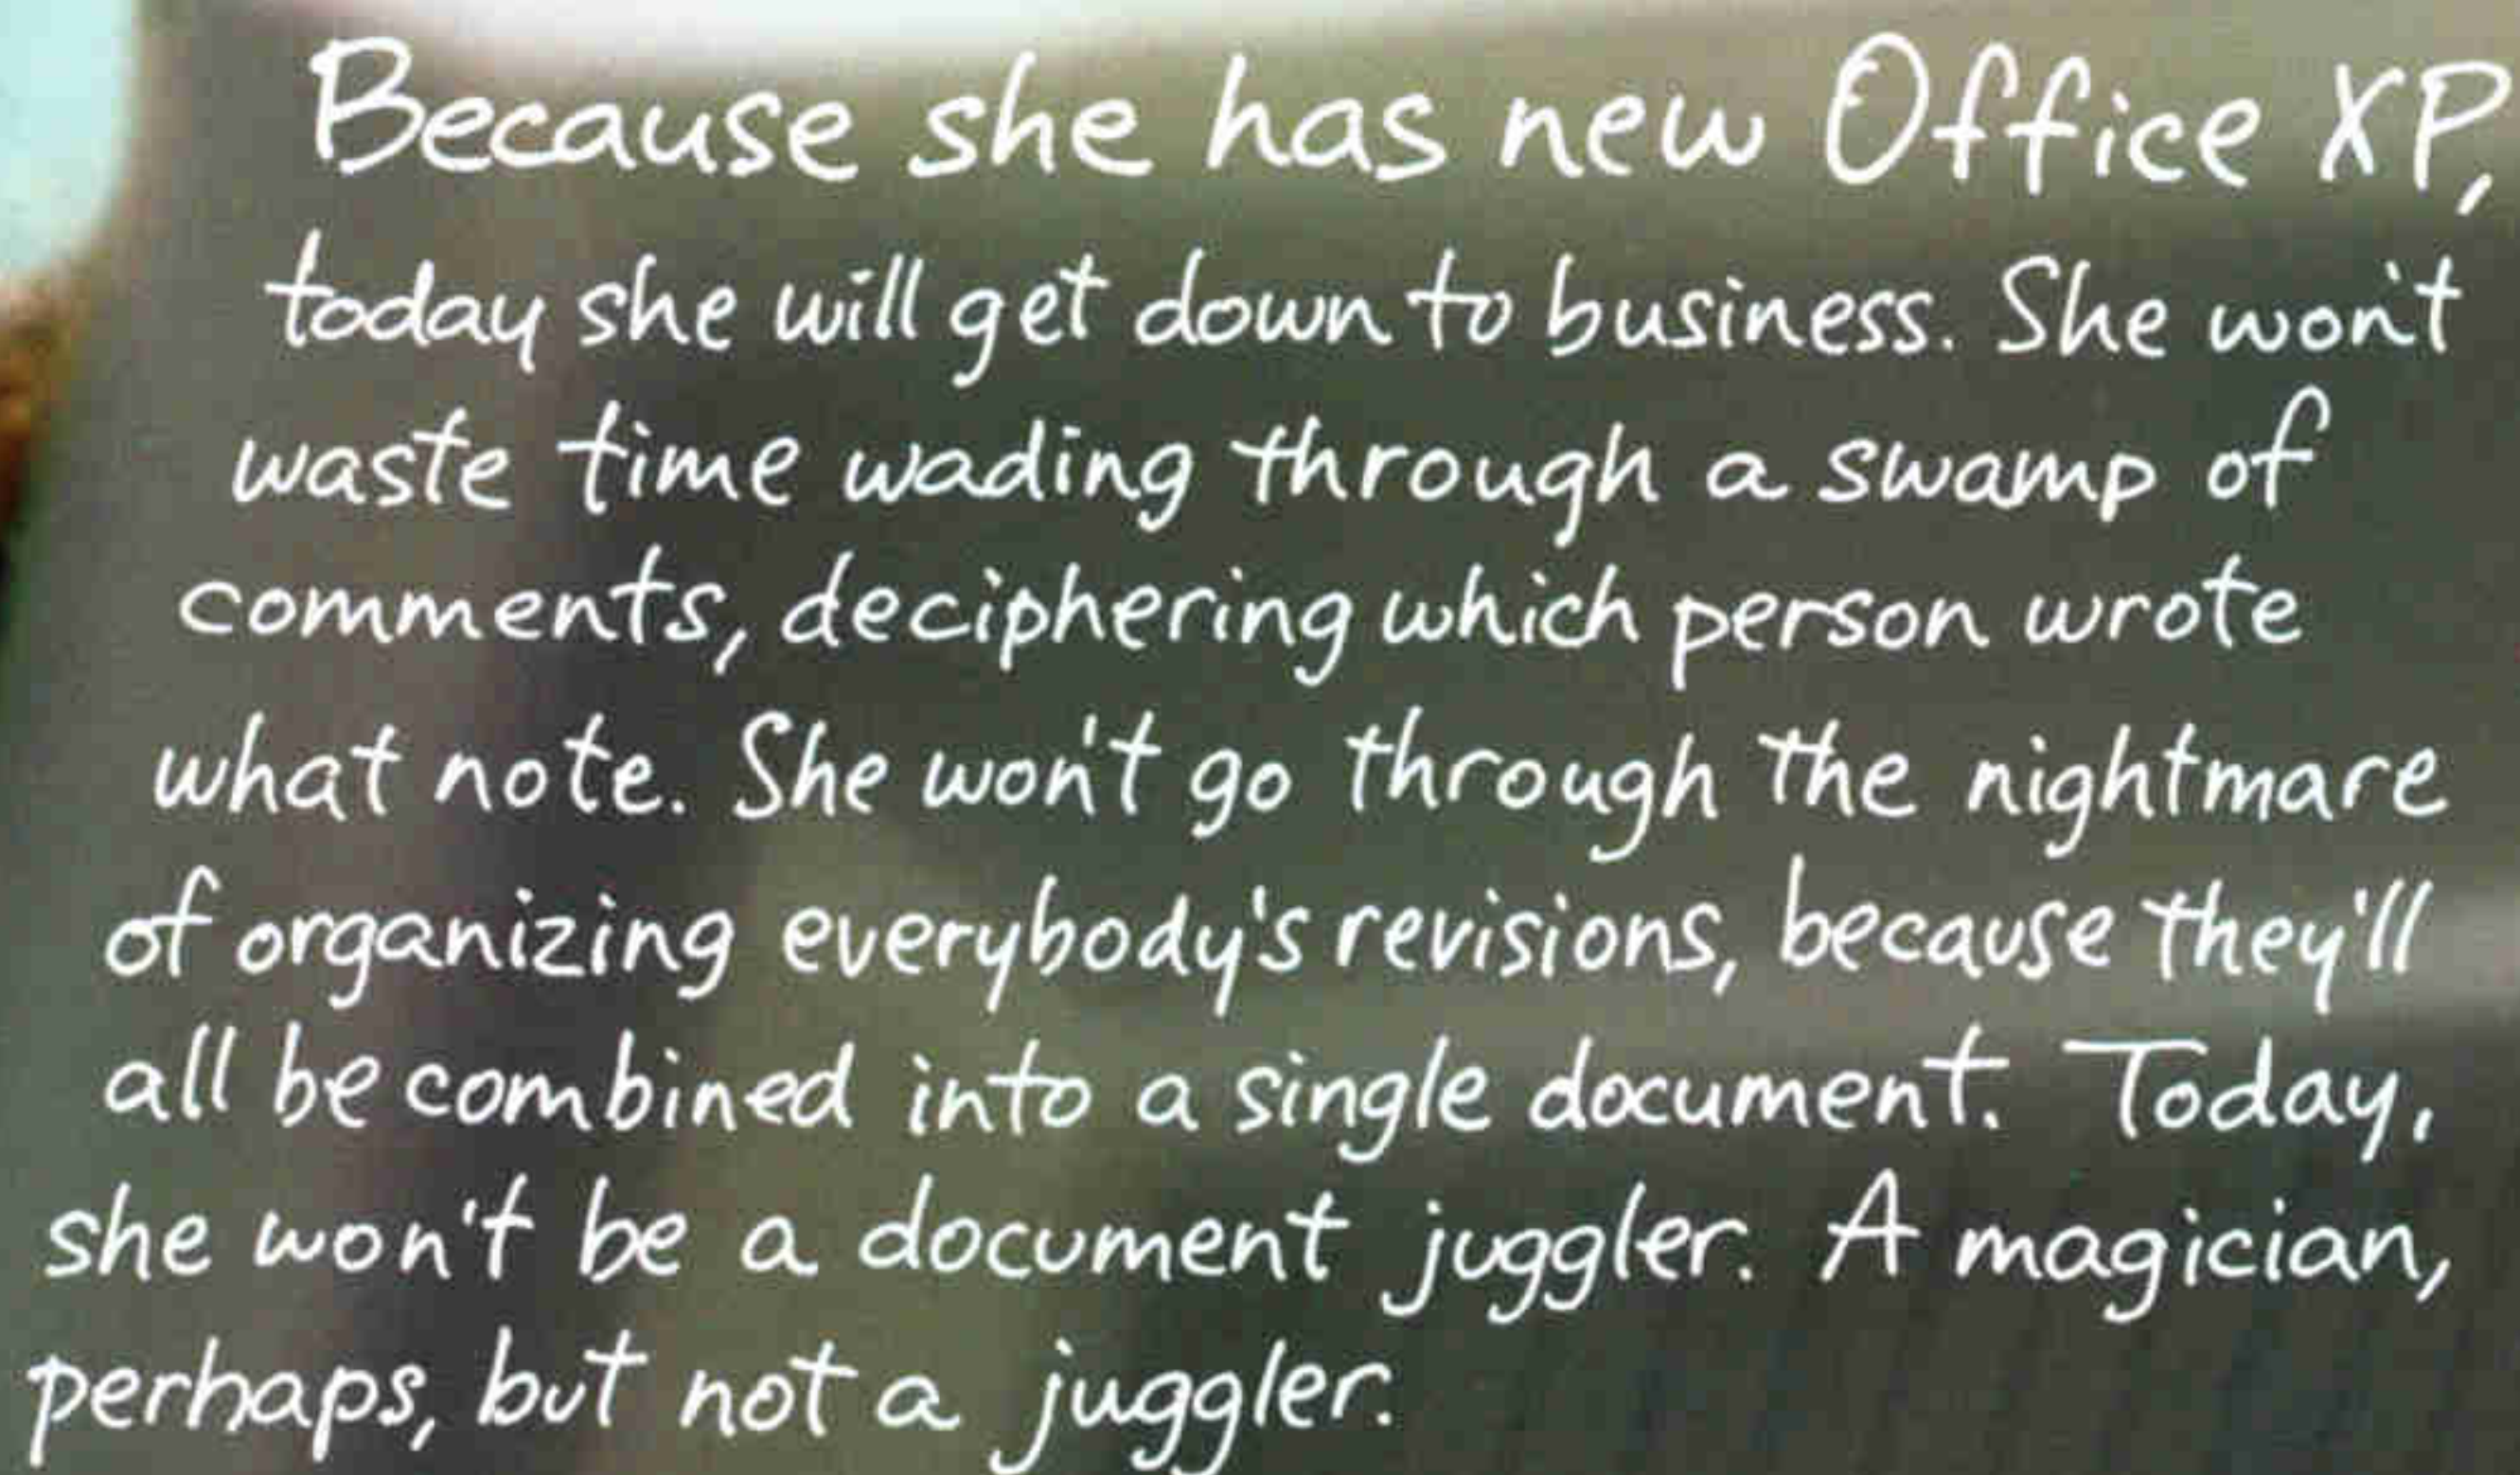 Because she has new Office XP,
today she will get down to business. She won't
waste time wading through a swamp of
comments, deciphering which person wrote
what note. She won't go through the nightmare
of organizing everybody's revisions, because they'll
all be combined into a single document. Today,
she won't be a document juggler. A magician,
perhaps, but not a juggler.